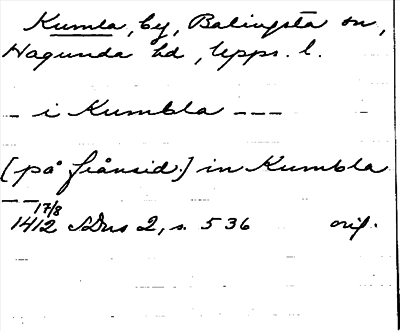 Kumla, by, Balingsta sn,
Hagunda hd, Upps. l.
– i Kumbla – – –
[på frånsid.] in Kumbla
– – 17/8
1412 SDns 2, s. 536 orig.